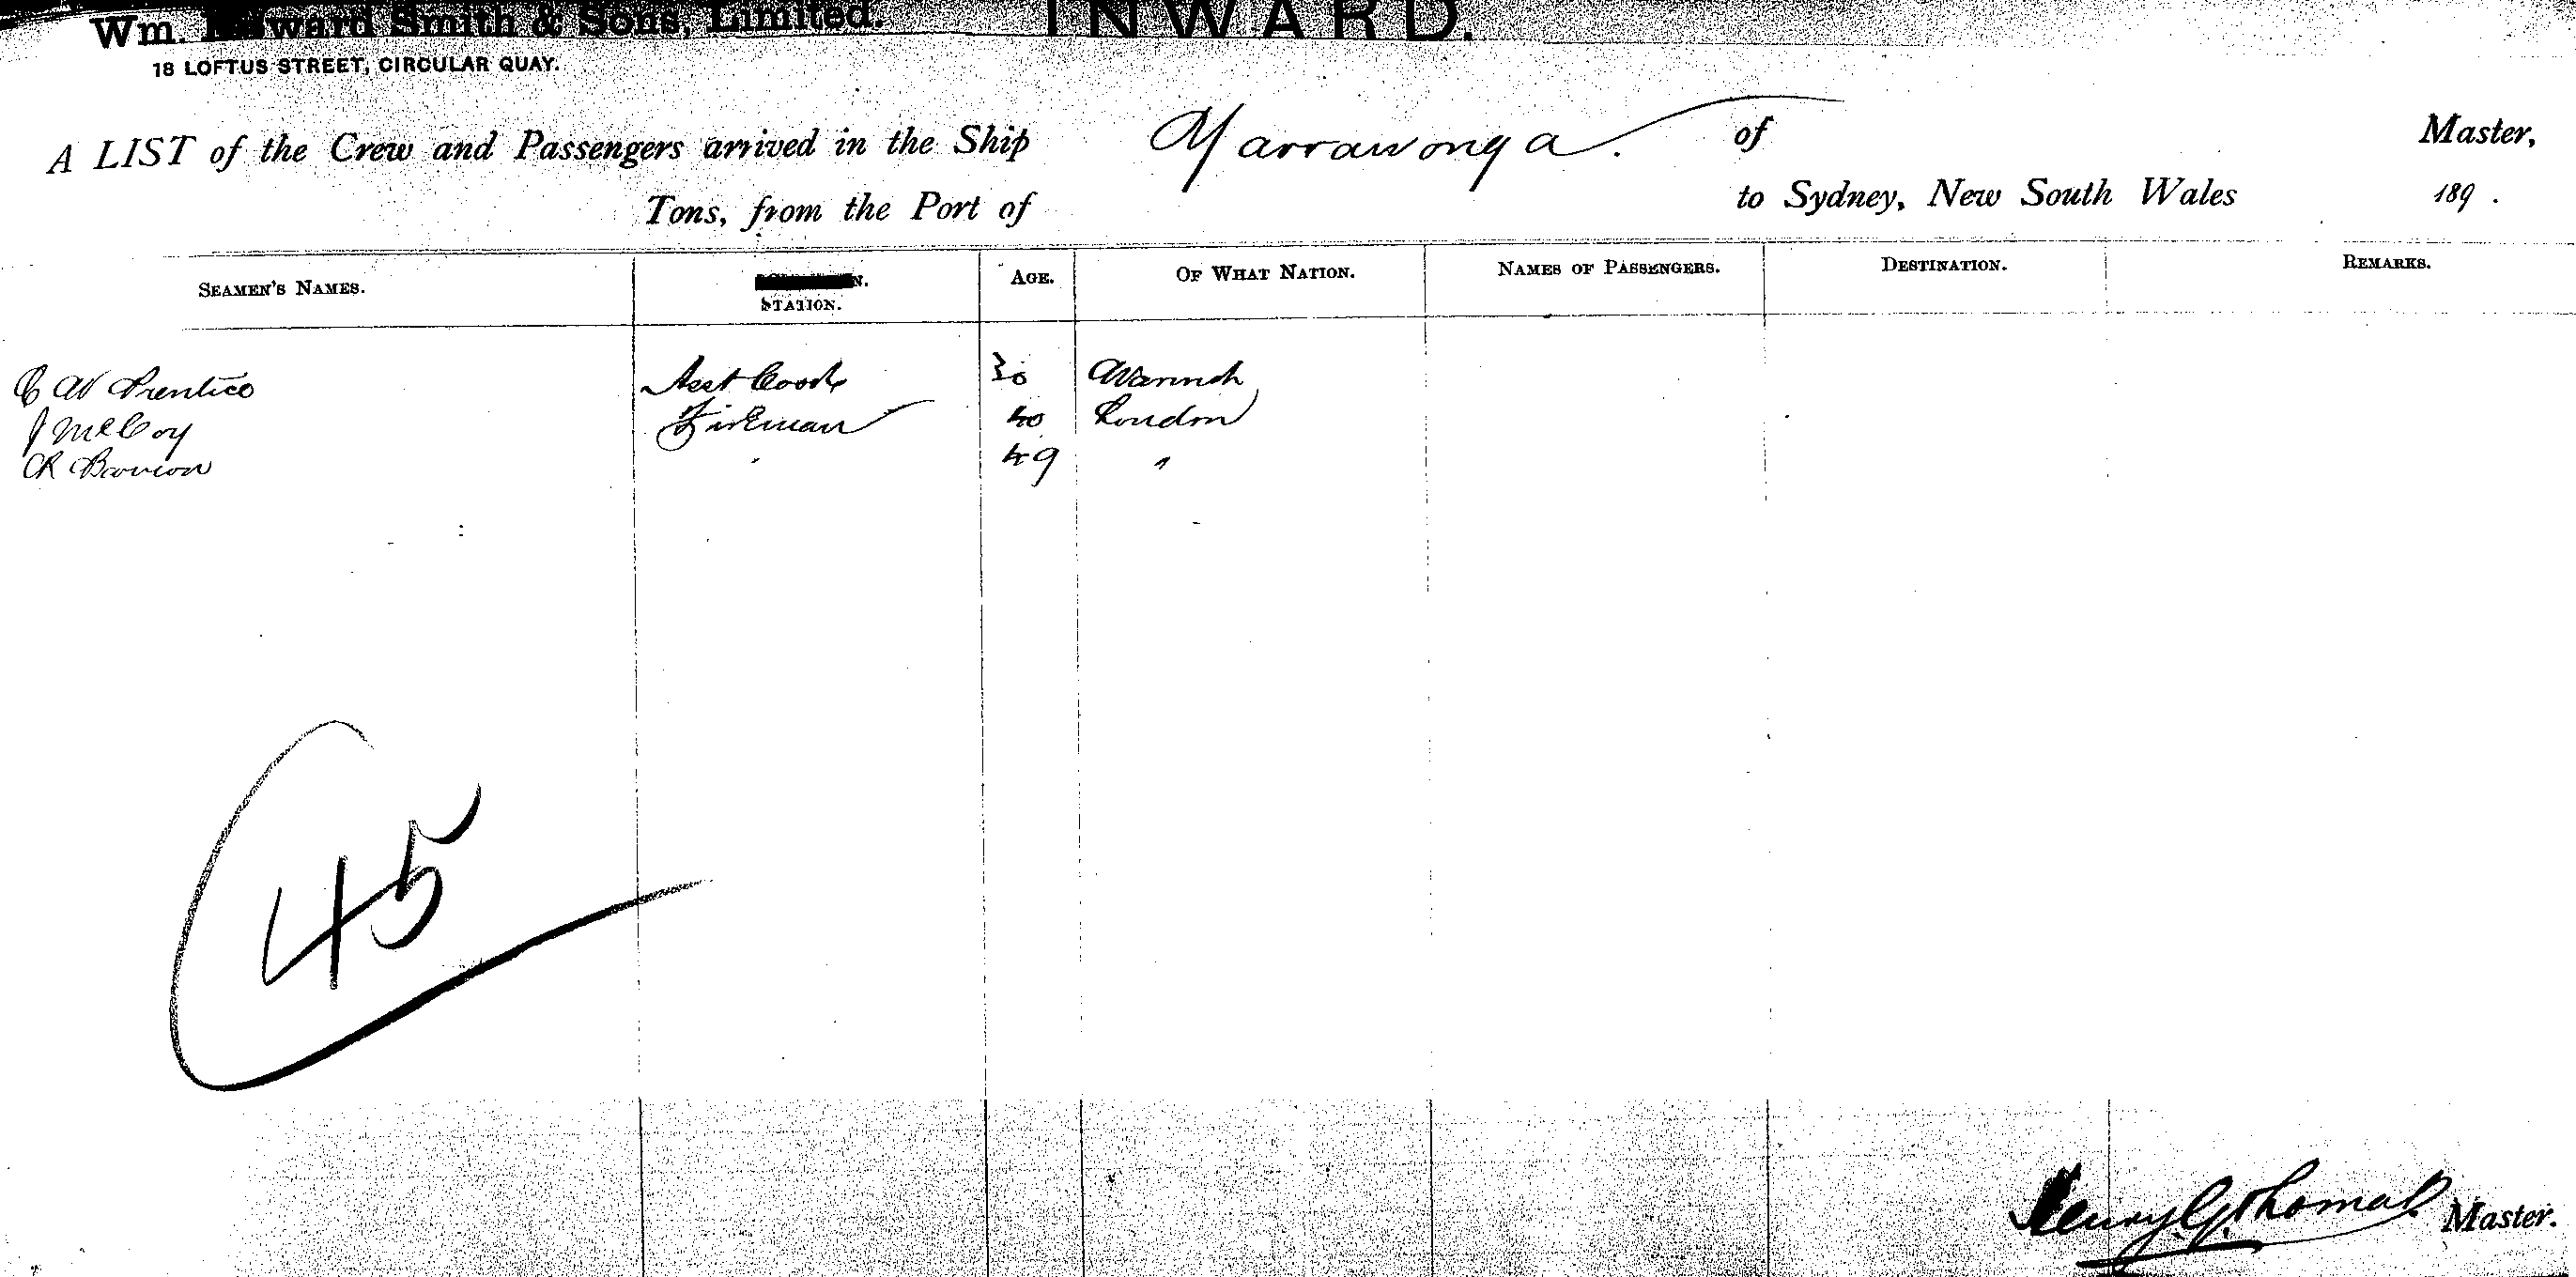 Wm. Howard Smith & Sons, Limited. INWARD.
18 LOFTUS STREET, CIRCULAR QUAY.
A LIST of the Crew and Passengers arrived in the Ship Yarrawonga. of Master,
Tons, from the Port of to Sydney, New South Wales 189 .
SEAMEN'S NAMES. STATION. AGE. OF WHAT NATION. NAMES OF PASSENGERS. DESTINATION. REMARKS.
C W Prentice Asst Cook 30
J McCoy Fireman 40 London
CR 49 "
45
Henry G. Thomas Master.